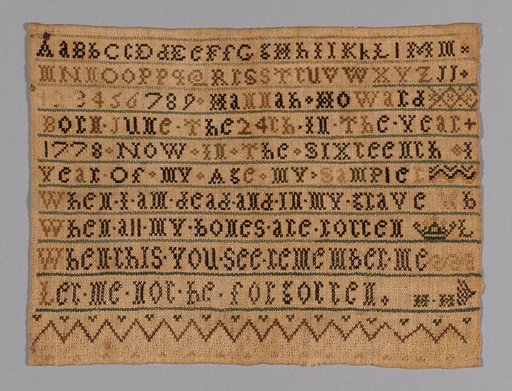 AaBbCcDdEeFfGgHhIiKkLlMm
mNnOoPpQqRrSsTtUVvWXYZJJ
3456789 Hannah Howard
Born June The 24th In The Year
1778 Now In The Sixteenth
Year Of my Age my Sampler
When I am dead and in my grave
When all my bones are rotten
When this You see remember me
Let me not be forgotten H H